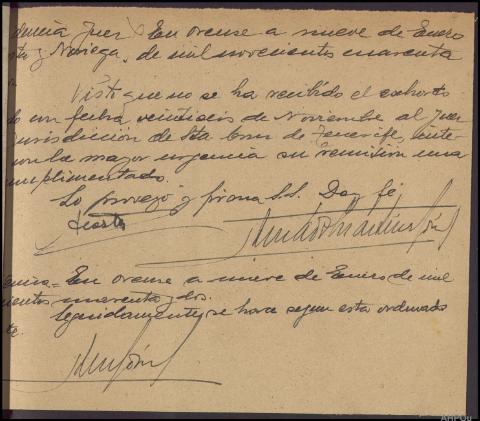 dencia Juez En Orense a nueve de Enero
y Noriega. de mil novecientos cuarenta
Visto que no se ha recibido el exhorto
do con fecha veintiseis de Noviembre al Juez
Jurisdicción de Sta Cruz de Tenerife,
con la mayor urgencia su remisión una
cumplimentado.
Lo proveyó y firma S.S. Doy fe
encia = En Orense a nueve de Enero de mil
cientos cuarenta y dos.
Seguidamente, se hace segun esta ordenado
AHPOu